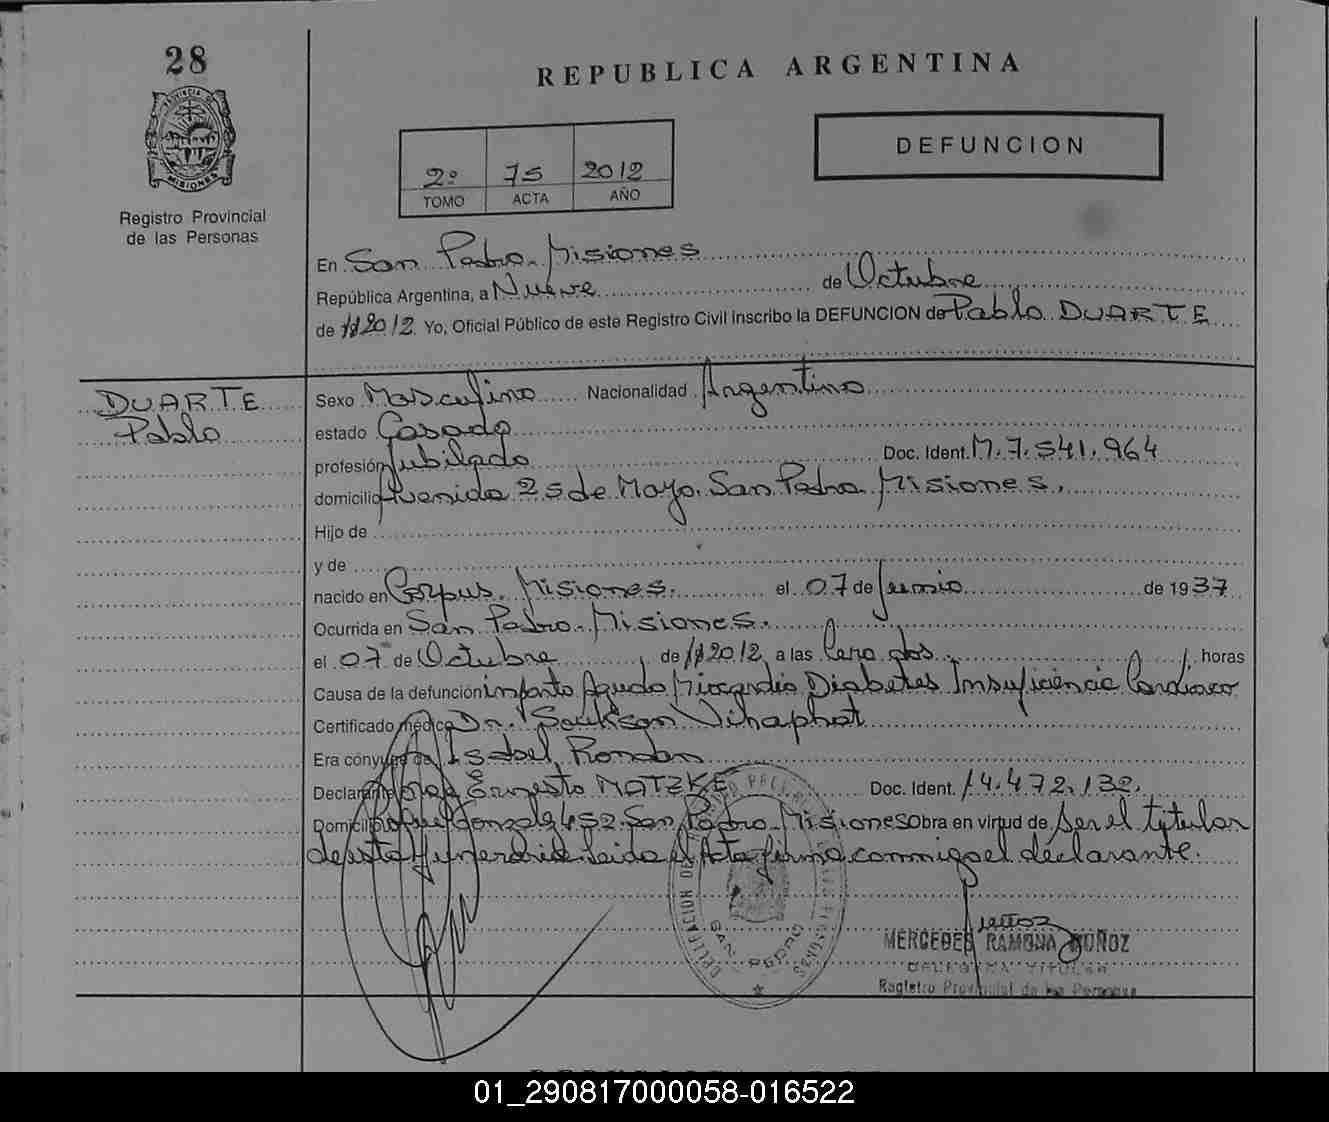 28
REPUBLICA ARGENTINA
PROVINCIA DE
MISIONES
Registro Provincial
de las Personas
2º 75 2012
TOMO ACTA AÑO
DEFUNCION
En San Pedro - Misiones
República Argentina, a Nueve de Octubre
de 2012 Yo, Oficial Público de este Registro Civil inscribo la DEFUNCION de Pablo DUARTE
DUARTE
Pablo
Sexo Masculino Nacionalidad Argentino
estado Casado
profesión Jubilado Doc. Ident. M. 7.541.964
domicilio Avenida 25 de Mayo. San Pedro Misiones.
Hijo de
y de
nacido en Corpus. Misiones. el 07 de Junio de 1937
Ocurrida en San Pedro - Misiones.
el 07 de Octubre de 2012 a las Cero dos horas
Causa de la defunción infarto Agudo Miocardio Diabetes Insuficiencia Cardiaca
Certificado médico Dr.
Era cónyuge de Isabel Rondan
Declarante Ernesto MATZKE Doc. Ident. 14.472.132.
Domicilio 452 San Pedro - Misiones Obra en virtud de ser el titular
de esta funeraria leida el Acta firma conmigo el declarante.
SAN PEDRO
MERCEDES RAMONA MUÑOZ
DELEGADA TITULAR
Registro Provincial de las Personas
01_290817000058-016522